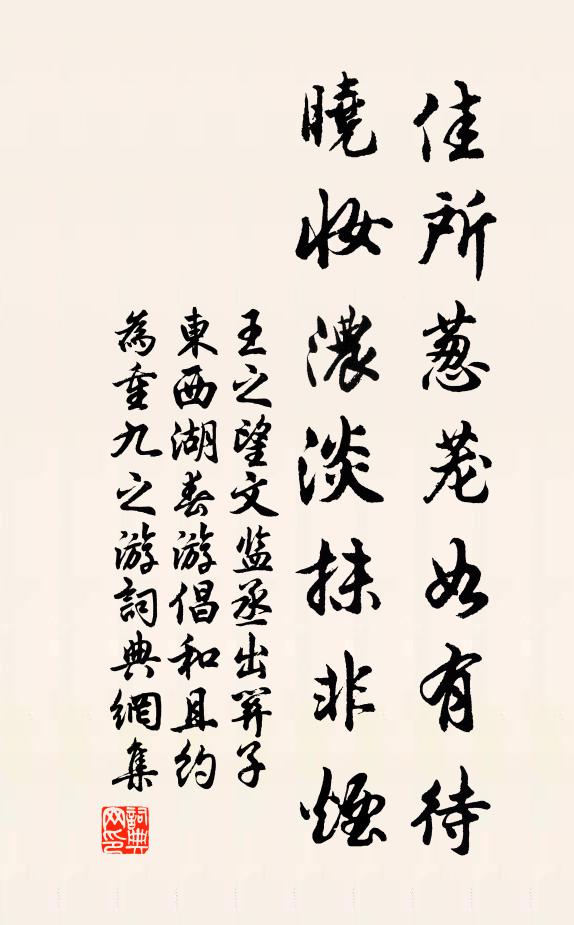 佳所葱茏如有待
曉妆濃淡抹非煙
王之望文监丞出羿子
東西湖春游倡和且约
為重九之游詞典網集
詞典网印